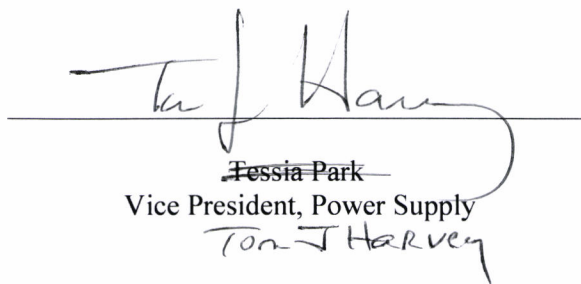 Tom J Harvey
Tessia Park
Vice President, Power Supply
Tom J Harvey